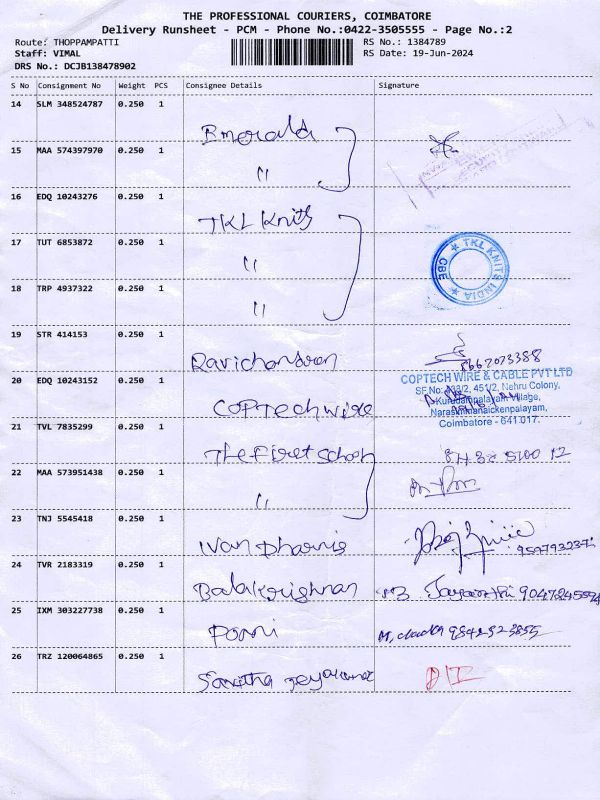 THE PROFESSIONAL COURIERS, COIMBATORE
Delivery Runsheet - PCM - Phone No.:0422-3505555 - Page No.:2
Route: THOPPAMPATTI RS No.: 1384789
Staff: VIMAL RS Date: 19-Jun-2024
DRS No.: DCJB138478902
S No Consignment No Weight PCS Consignee Details Signature
14 SLM 348524787 0.250 1
Emerald
15 MAA 574397970 0.250 1
"
16 EDQ 10243276 0.250 1
TKL Knits
17 TUT 6853872 0.250 1
"
TKL KNITS INDIA CBE
18 TRP 4937322 0.250 1
"
19 STR 414153 0.250 1
Ravichandran 8667073388
20 EDQ 10243152 0.250 1
COPTECH WIRE & CABLE PVT LTD
SF No: 451/2, Nehru Colony,
Kurudampalayam Village,
Narasimhanaickenpalayam,
Coimbatore - 641 017.
Coptech wire
21 TVL 7835299 0.250 1
The First School
22 MAA 573951438 0.250 1
"
23 TNJ 5545418 0.250 1
Ivan
24 TVR 2183319 0.250 1
Balakrishnan
25 IXM 303227738 0.250 1
Ponni
26 TRZ 120064865 0.250 1